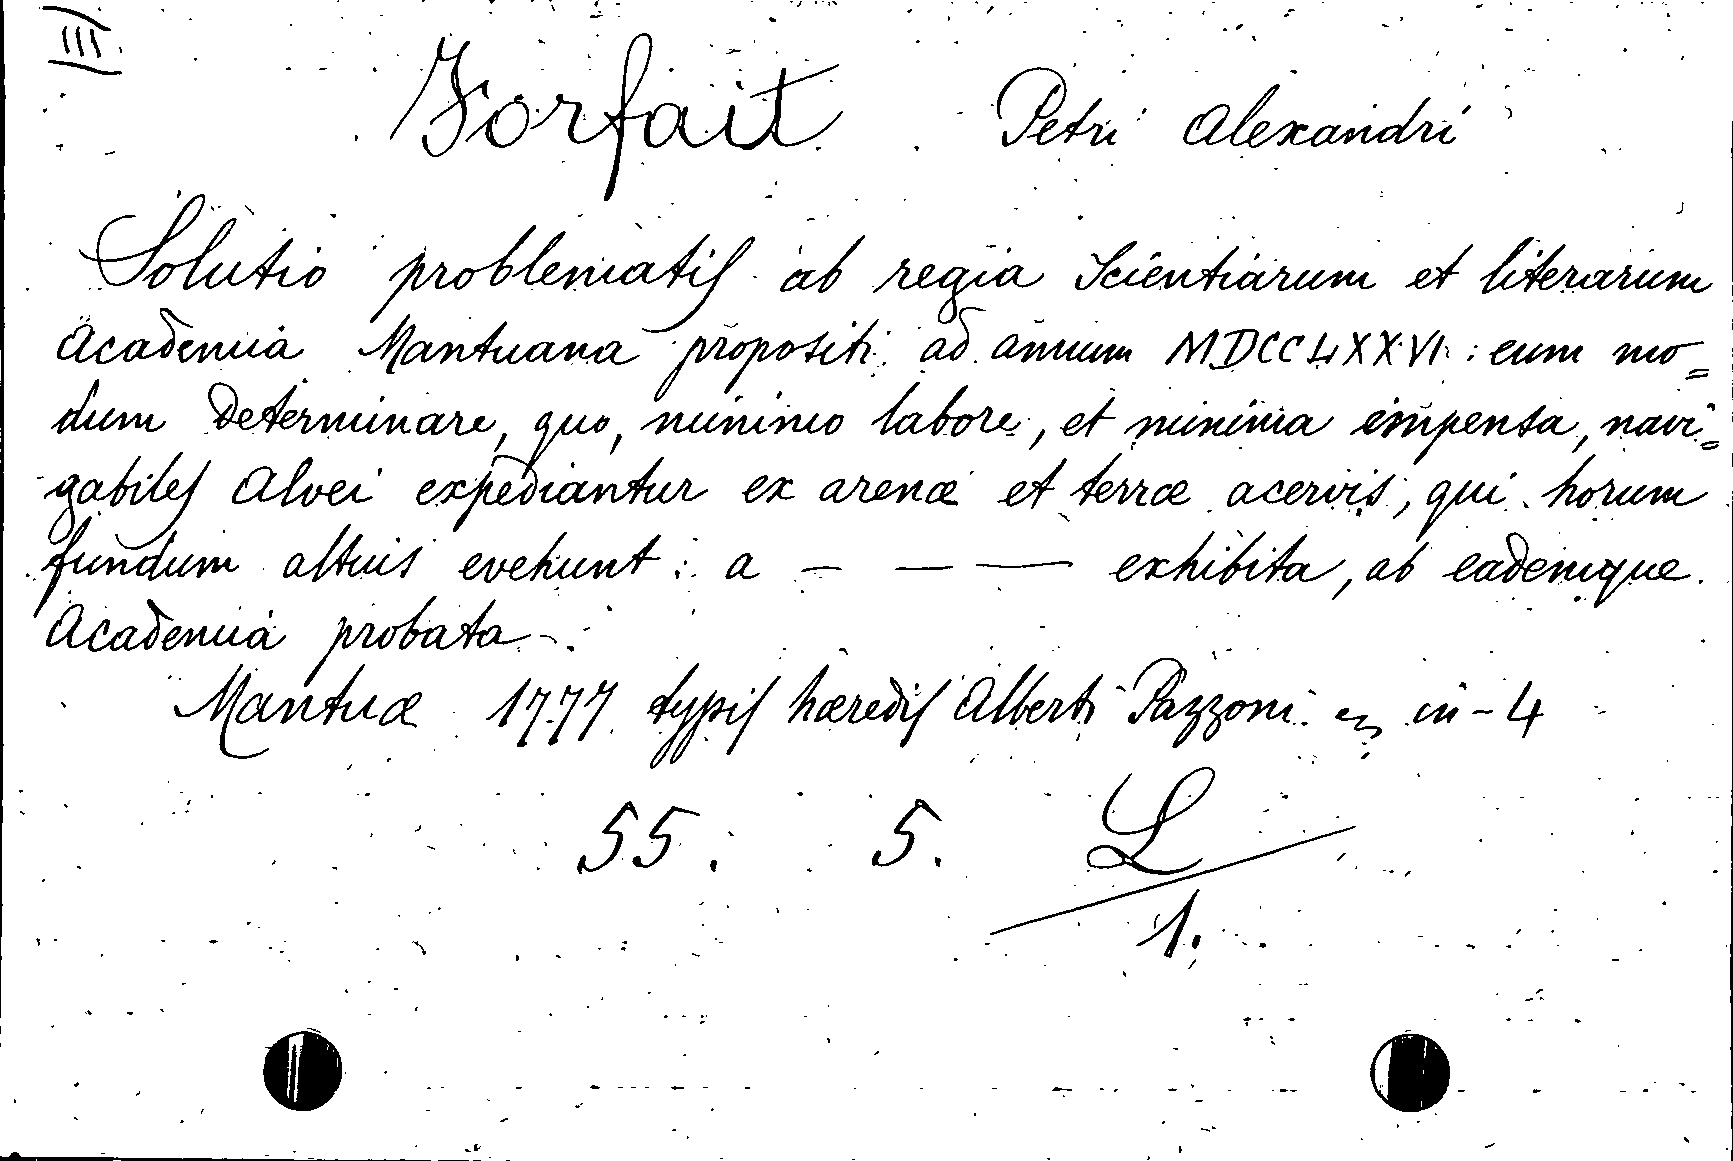 III.
Forfait Petri Alexandri
Solutio problematis ab regia Scientiarum et literarum
Academia Mantuana propositi ad annum MDCCLXXVI: eum mo=
dum Determinare, quo, minimo labore, et minima impensa, navi=
gabiles Alvei expediantur ex arenæ et terræ acervis, qui horum
fundum altius evehunt: a — — — exhibita, ab eademque
Academia probata
Mantuæ 1777 typis hæredis Alberti Pazzoni in-4
55. 5. L
1.